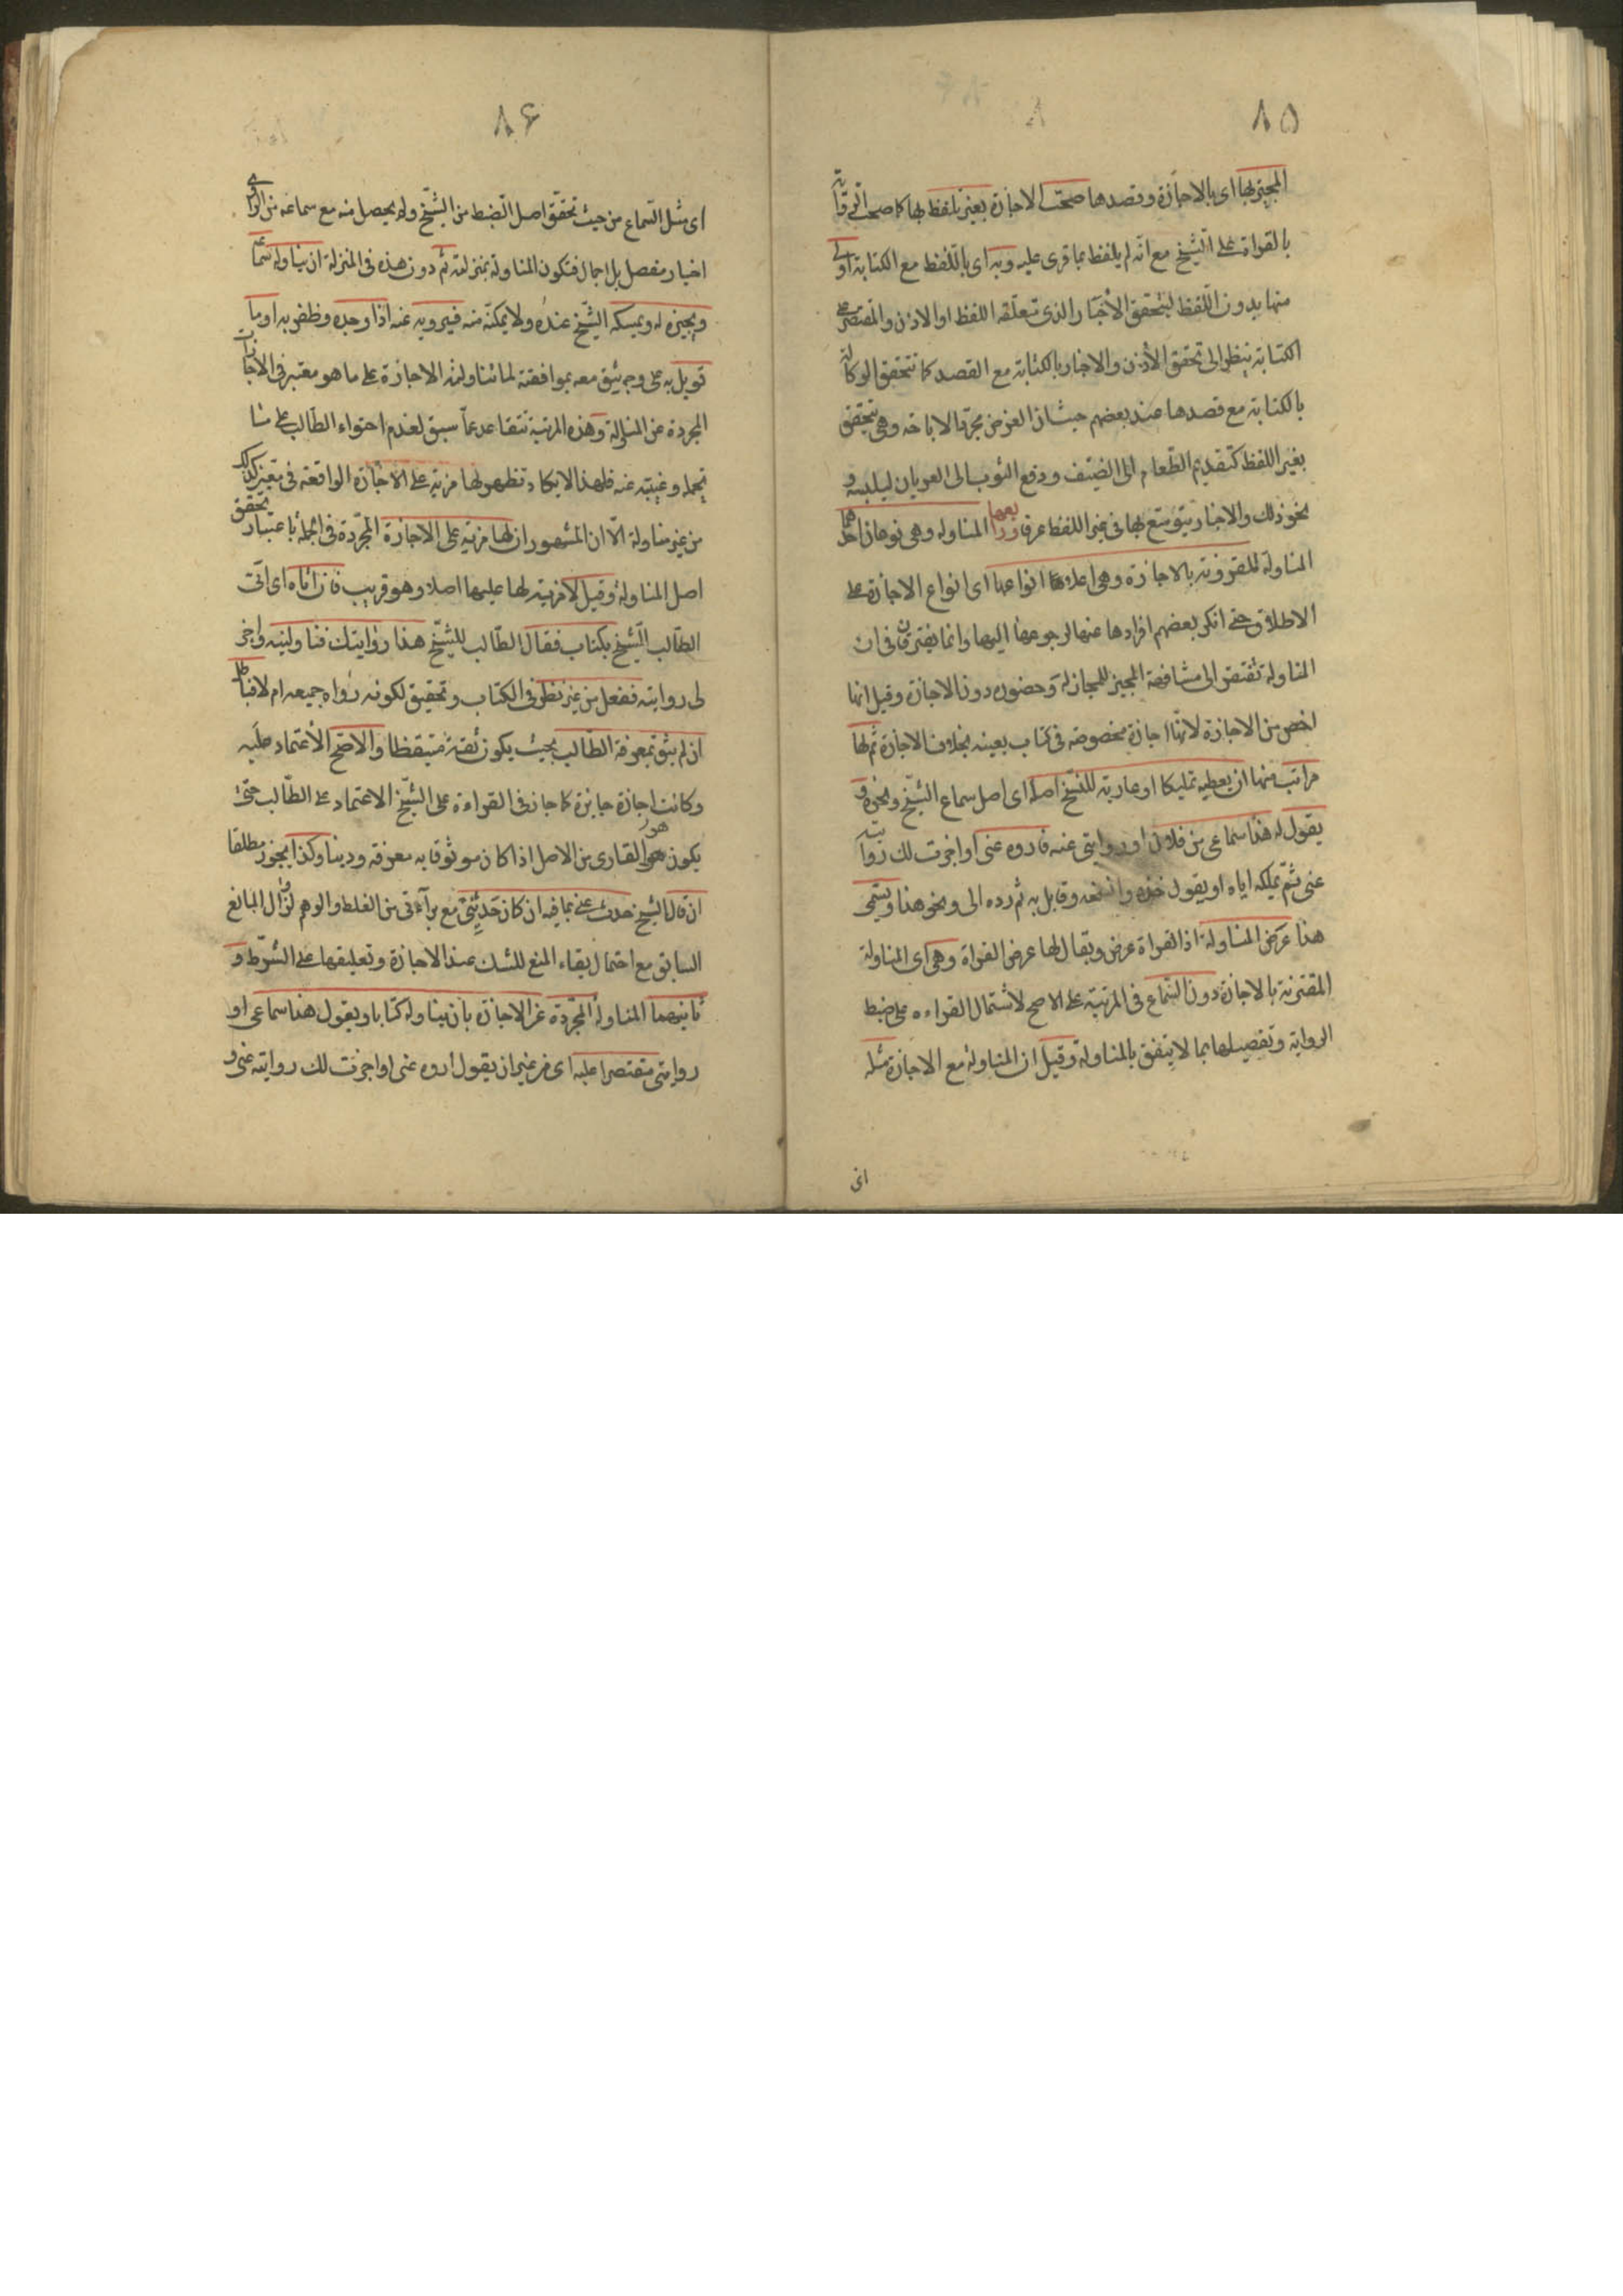 ۸۵
المجيز بها اى بالاجازة وقصدها صحّت الاجازة بغير تلفظ بها كما صحت الرواية
بالقراءة على الشيخ مع انّه لم يلفظ بما قرى عليه وبه اى باللّفظ مع الكتابة اولى
منها بدون اللّفظ ليتحقق الأخبار الذى متعلقه اللفظ او الاذن والمقتصر على
الكتابة ينظر الى تحقق الأذن والاخبار بالكتابة مع القصد كما تتحقق الوكالة
بالكتابة مع قصدها عند بعضهم حيث ان الغرض مجرّد الاباحة وهى تتحقق
بغير اللفظ كتقديم الطّعام الى الضيف ودفع الثوب الى العريان ليلبسه و
نحو ذلك والاخبار يتوسّع بها فى غير اللفظ عرفا ورابعها المناولة وهى نوعان احدهما
المناولة المقرونة بالاجازة وهى اعلا انواعها اى انواع الاجازة على
الاطلاق حتى انكر بعضهم افرادها عنها لرجوعها اليها وانما يفترقان فى ان
المناولة تفتقر الى مشافهة المجيز للمجاز له وحضوره دون الاجازة وقيل انها
اخص من الاجازة لانّها اجازة مخصوصة فى كتاب بعينه بخلاف الاجازة ثم لها
مراتب منها ان يعطيه تمليكا او عارية للنسخ اصله اى اصل سماع الشيخ ونحوه و
يقول له هذا سماعى من فلان او روايتى عنه فاروه عنى او اجزت لك روايته
عنى ثم يملكه اياه او يقول خذه وانسخه وقابل به ثم رده الى ونحو هذا ويسمى
هذا عرض المناولة اذ القراءة عرض ويقال لها عرض القراءة وهى اى المناولة
المقترنة بالاجازة دون السّماع فى المرتبة على الاصح لاشتمال القراءه على ضبط
الرواية وتفصيلها بما لا يتفق بالمناولة وقيل ان المناولة مع الاجازة مثله
اى
۸۶
اى مثل السّماع من حيث تحقق اصل الضبط من الشيخ ولم يحصل منه مع سماعه من الراوى
اخبار مفصل بل اجمال فتكون المناولة بمنزلته ثم دون هذه فى المنزلة ان يناوله سماعه
ويجيزه له ويمسكه الشيخ عنده ولا يمكنه منه فيرويه عنه اذا وجده وظفر به او ما
قوبل به على وجه يثق معه بموافقته لما تناولته الاجازة على ما هو معتبر فى الاجازات
المجردة عن المناولة وهذه المرتبة تتقاعد عمّا سبق لعدم احتواء الطّالب على ما
تحمله وغيبته عنه فلهذا لا يكاد تظهر لها مزية على الاجازة الواقعة فى معين كذلك
من غير مناولة الّا ان المشهور ان لها مزية على الاجازة المجرّدة فى الجملة باعتبار تحقق
اصل المناولة وقيل لا مزية لها عليها اصلا وهو قريب فان اتاه اى اتى
الطّالب الشيخ بكتاب فقال الطّالب للشيخ هذا روايتك فناولنيه واجز
لى روايته ففعل من غير نظر فى الكتاب وتحقيق لكونه رواه جميعه ام لا فباطل
ان لم يثق بمعرفة الطّالب بحيث يكون ثقة متيقظا والاصح الأعتماد عليه
وكانت اجازة جايزة كما جاز فى القراءة على الشيخ الاعتماد على الطّالب حتى
يكون هو القارى من الاصل اذا كان موثوقا به معرفة ودينا وكذا يجوز مطلقا
ان قال الشيخ حدث عنى بما فيه ان كان حديثى مع برآءتى من الغلط والوهم لزوال المانع
السابق مع احتمال بقاء المنع للشك عند الاجازة وتعليقها على الشرط و
ثانيهما المناولة المجرّدة عن الاجازة بان يناوله كتابا ويقول هذا سماعى او
روايتى مقتصرا عليه اى من غير ان يقول اروه عنى او اجزت لك روايته عنى و